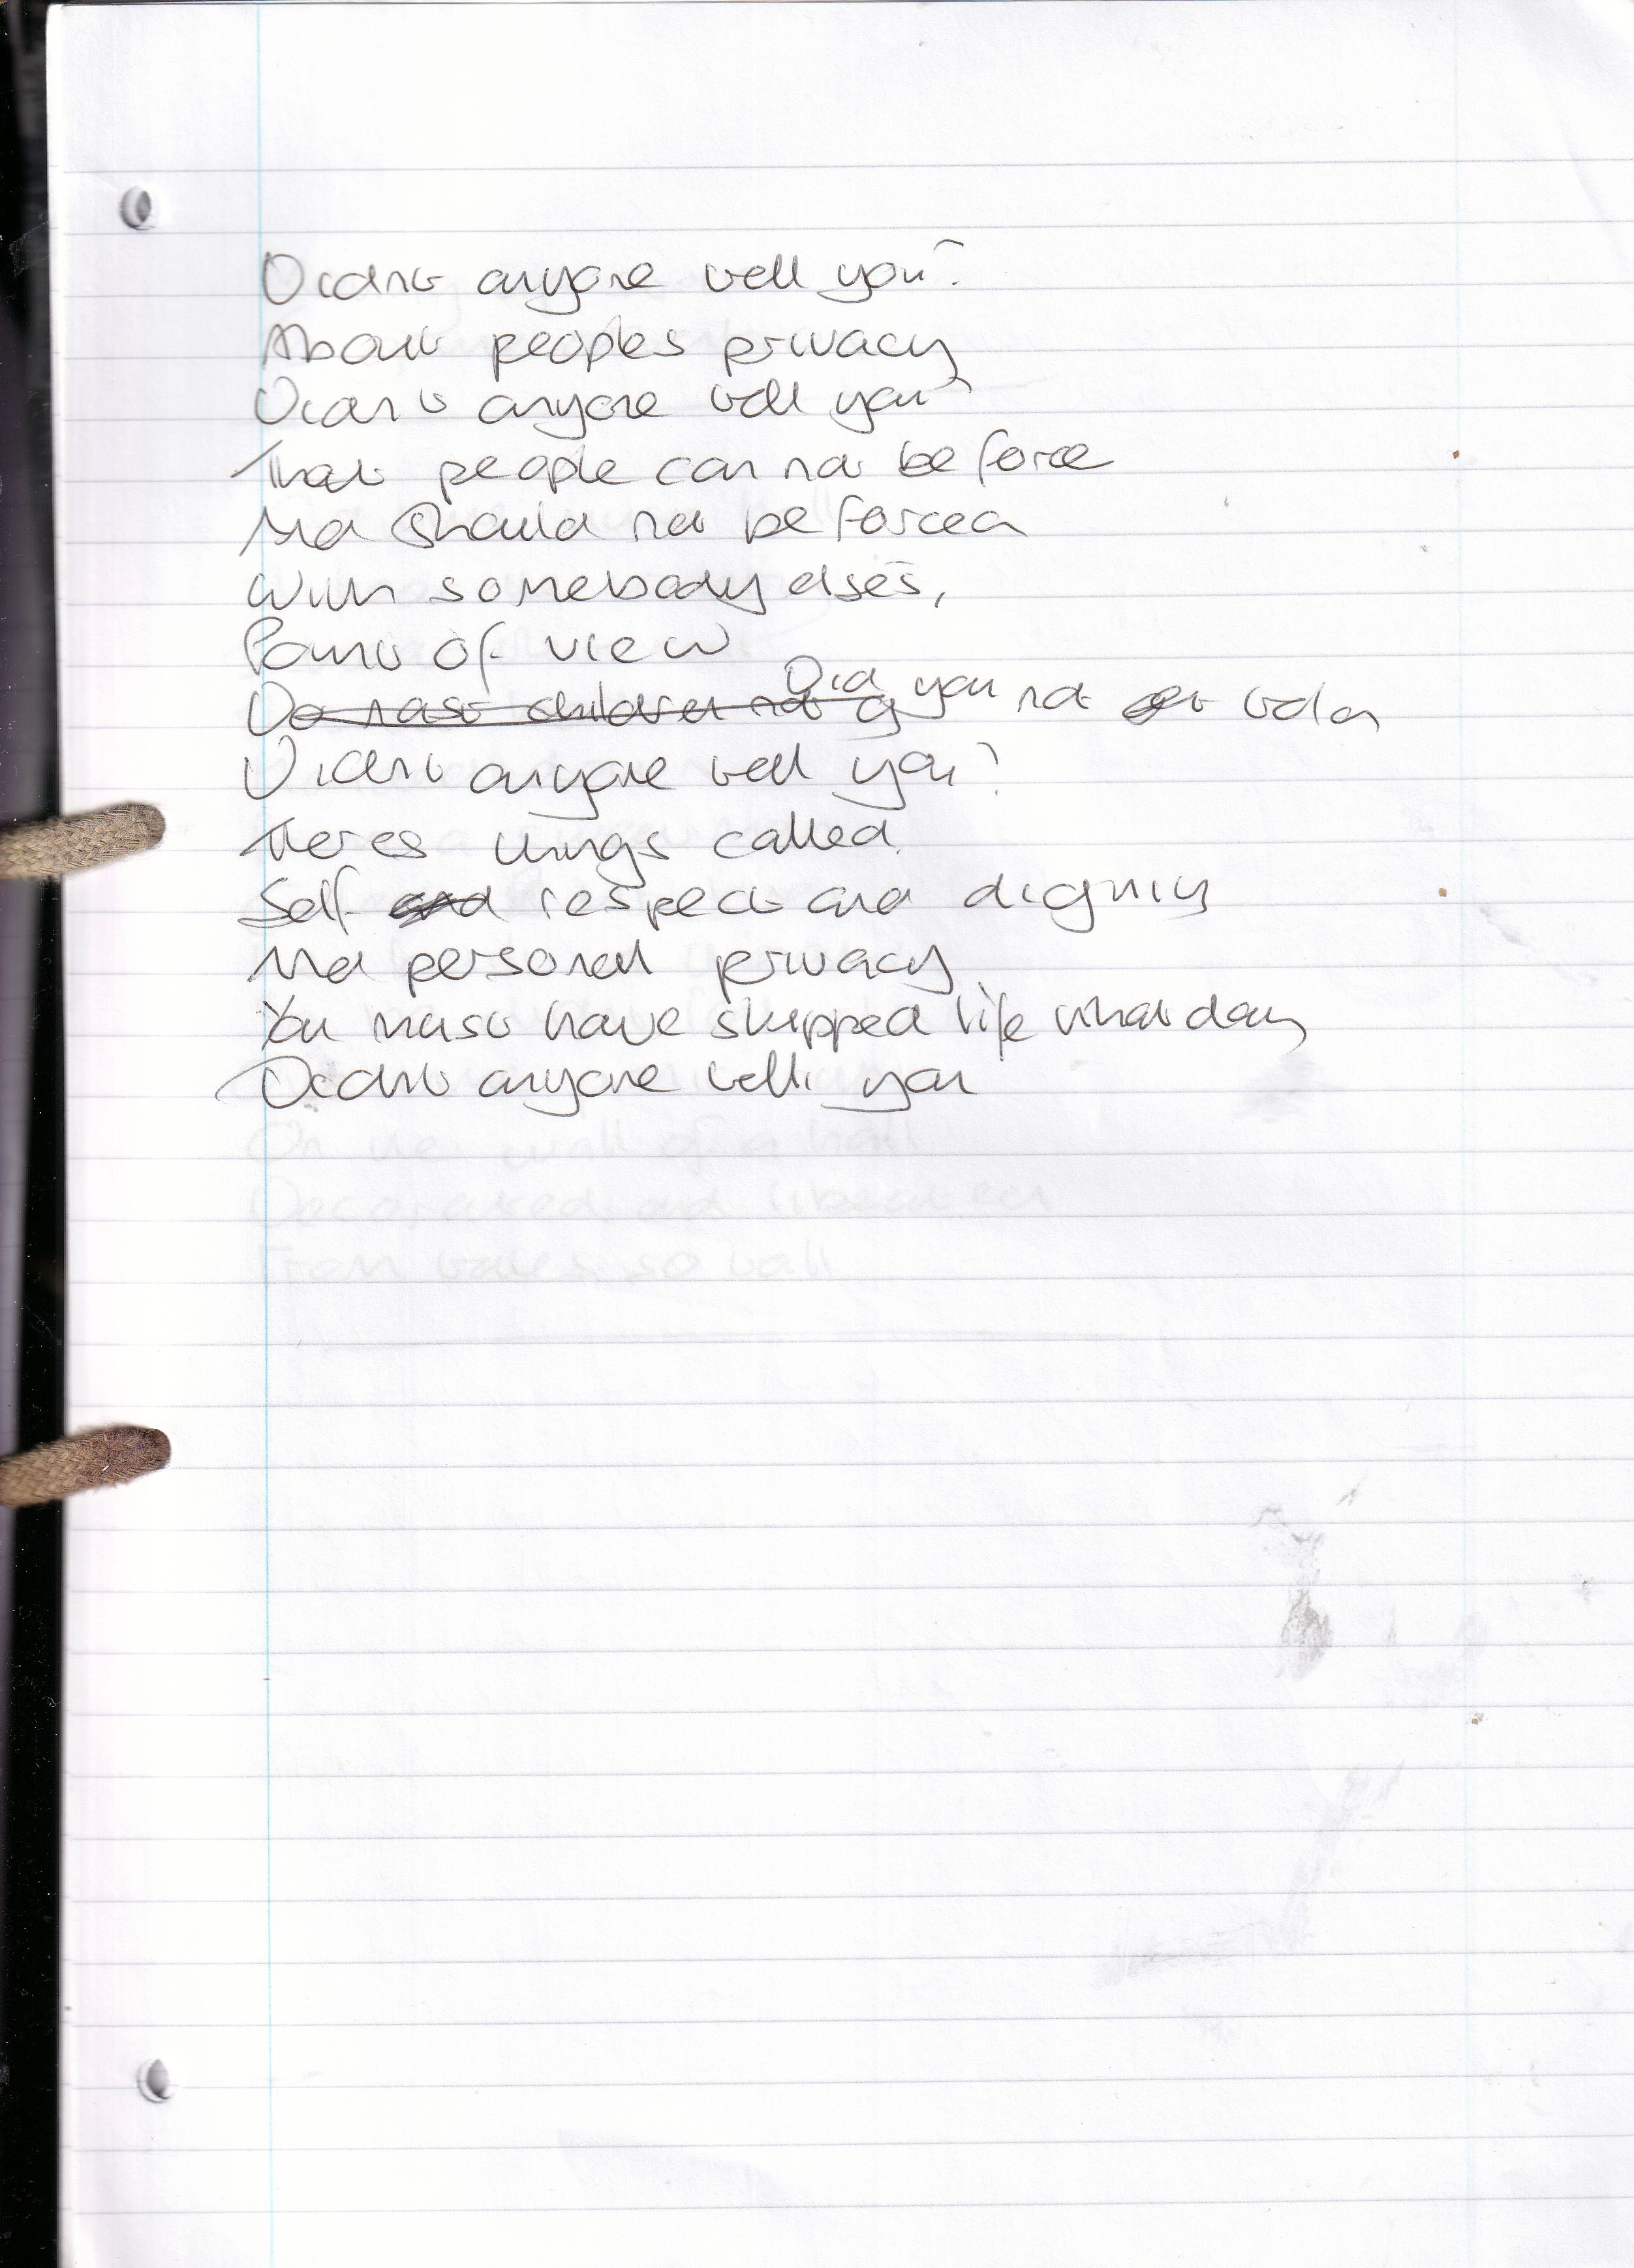 Didn't anyone tell you?
About peoples privacy
Didn't anyone tell you?
That people can not be force
And should not be forced
With somebody else's,
Point of view
Do most children not g Did you not get told
Didn't anyone tell you?
Theres things called
Self and respect and dignity
And personal privacy
You must have skipped life that day
Didn't anyone tell you
On the wall of a hall